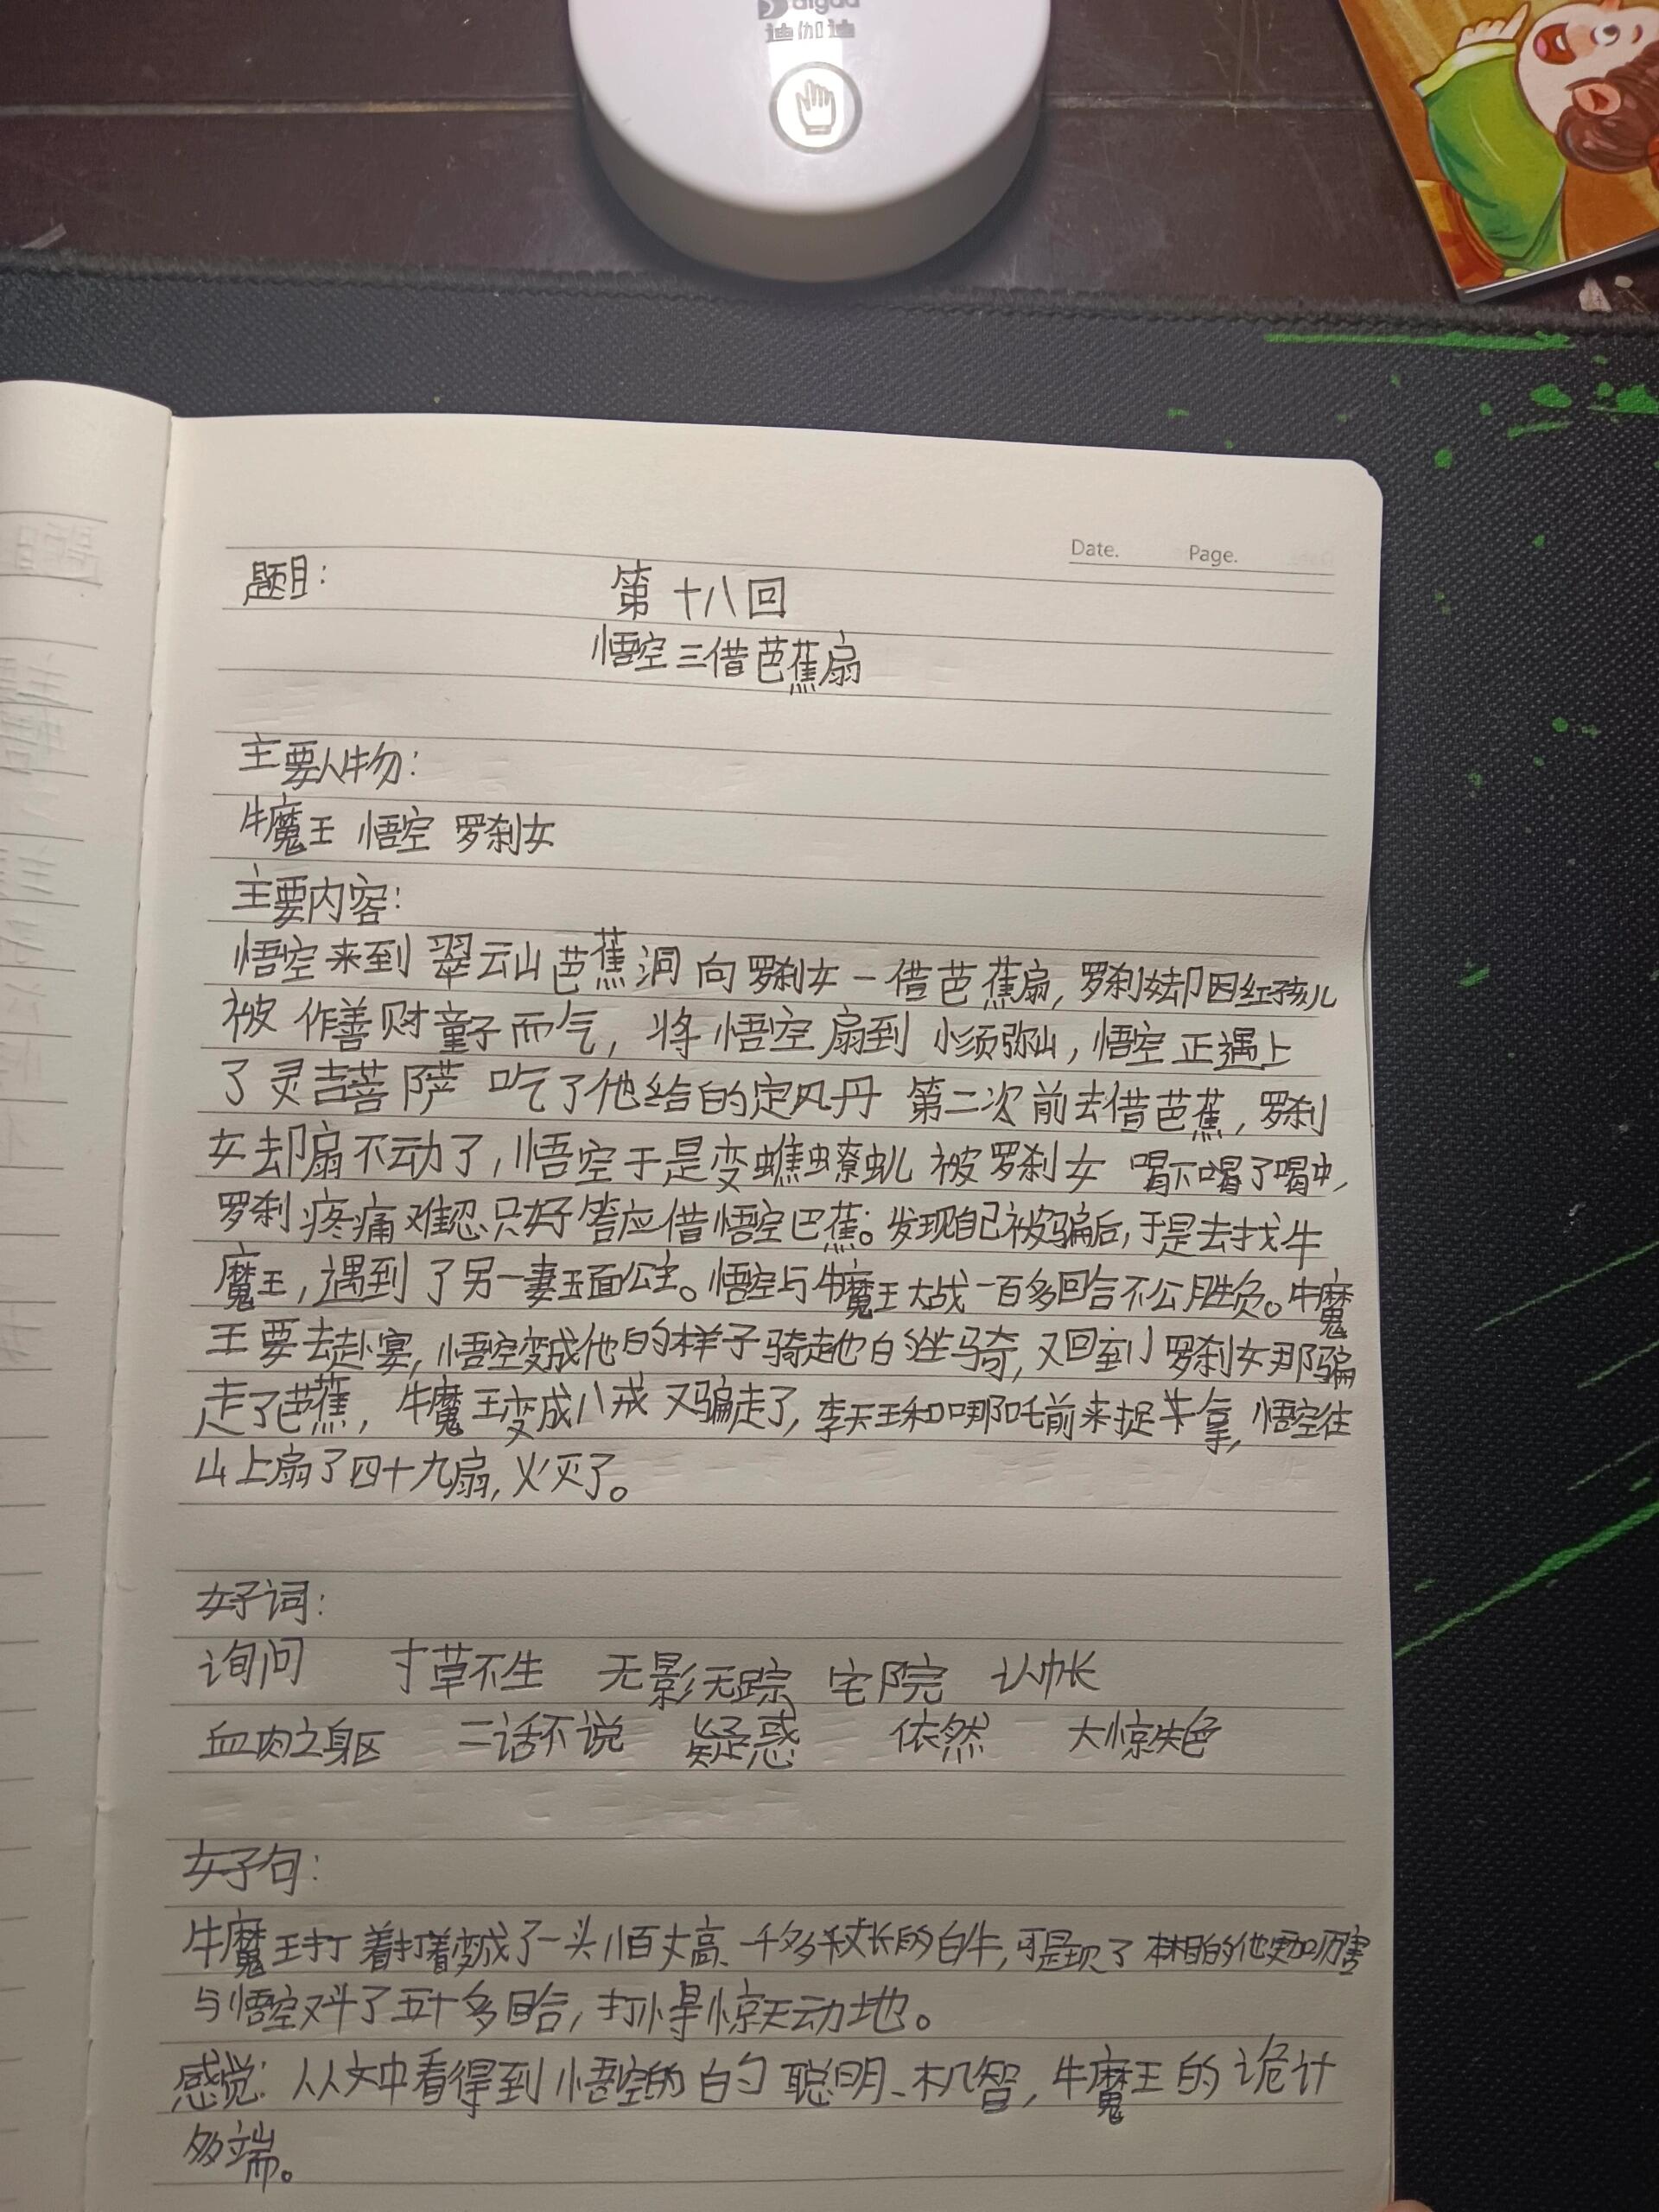 迪加迪
Date. Page.
题目: 第十八回
悟空三借芭蕉扇
主要人物:
牛魔王 悟空 罗刹女
主要内容:
悟空来到翠云山芭蕉洞向罗刹女一借芭蕉扇,罗刹女却因红孩儿
被作善财童子而气,将悟空扇到小须弥山,悟空正遇上
了灵吉菩萨 吃了他给的定风丹 第二次前去借芭蕉,罗刹
女却扇不动了,悟空于是变蟭蟟虫儿 被罗刹女 喝下喝了喝中,
罗刹疼痛难忍只好答应借悟空巴蕉。发现自己被骗后,于是去找牛
魔王,遇到了另一妻玉面公主。悟空与牛魔王大战一百多回合不分胜负。牛魔
王要去赴宴,悟空变成他的样子骑走他的坐骑,又回到罗刹女那骗
走了芭蕉,牛魔王变成八戒又骗走了,李天王和哪吒前来捉拿,悟空往
山上扇了四十九扇,火灭了。
好词:
询问 寸草不生 无影无踪 宅院 认帐
血肉之身区 二话不说 疑惑 依然 大惊失色
好句:
牛魔王打着打着变成了一头八百丈高、千多丈长的白牛,可是现了本相的他更加厉害
与悟空又斗了五十多回合,打得惊天动地。
感觉:从文中看得到悟空的的聪明、机智,牛魔王的诡计
多端。